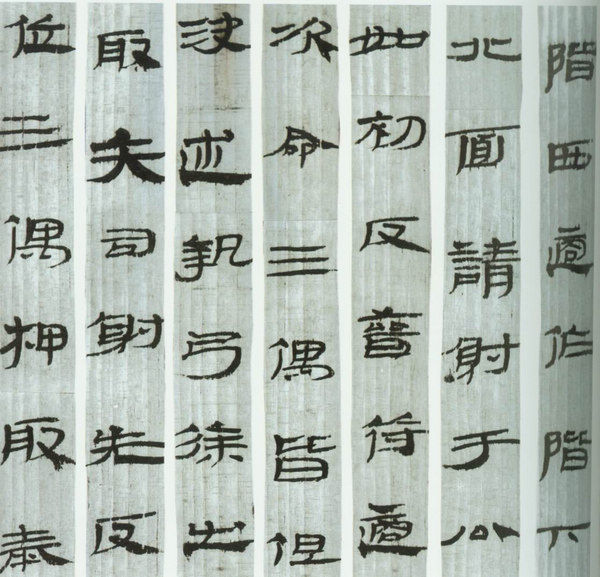 階西適作階下
北面請射于公
如初反晉適
次命三偶皆但
決述執弓徐出
取矢司射先反
位三偶押取